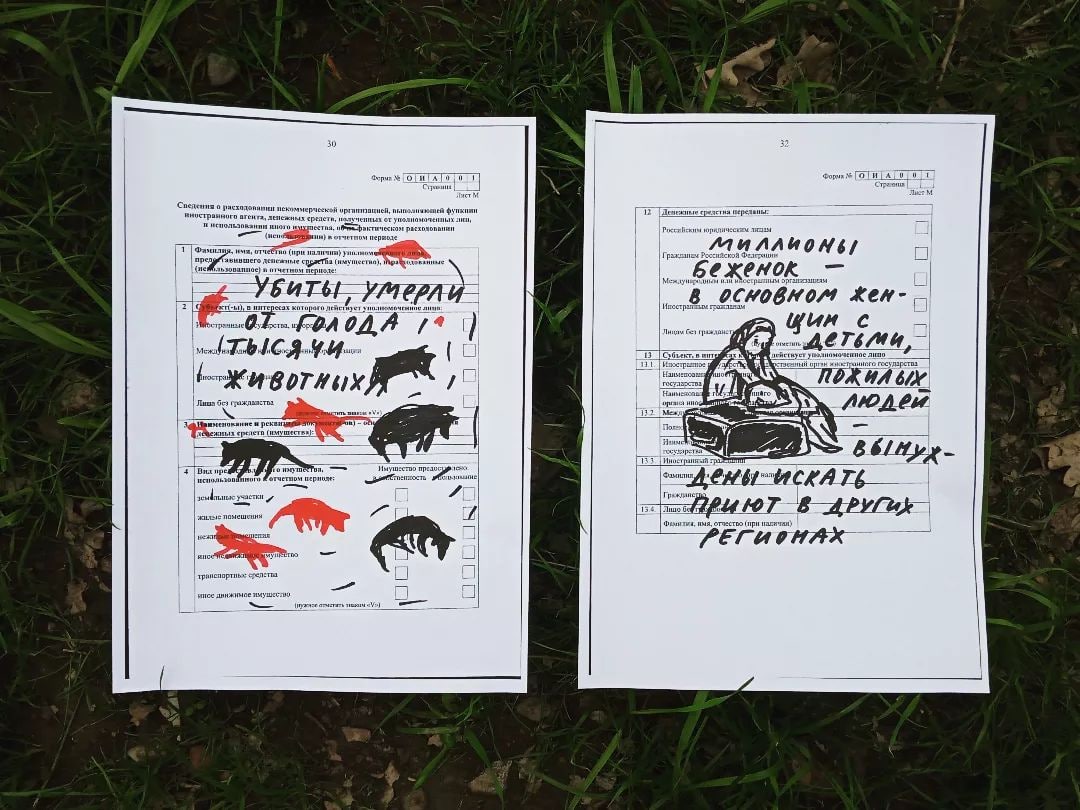 30
Форма № О И А 0 0 1
Страница
Лист М
Сведения о расходовании некоммерческой организацией, выполняющей функции
иностранного агента, денежных средств, полученных от уполномоченных лиц,
и использовании иного имущества, об их фактическом расходовании
(использовании) в отчетном периоде
1 Фамилия, имя, отчество (при наличии) уполномоченного лица,
предоставившего денежные средства (имущество), израсходованные
(использованное) в отчетном периоде:
УБИТЫ, УМЕРЛИ
2 Субъект(-ы), в интересах которого действует уполномоченное лицо:
Иностранные государства,
ОТ ГОЛОДА
ТЫСЯЧИ
Международные организации
ЖИВОТНЫХ
Иностранные
Лица без гражданства
(нужное отметить знаком «V»)
3 Наименование и реквизиты
денежных средств (имущества):
4 Вид предоставленного имущества,
использованного в отчетном периоде:
Имущество предоставлено:
в собственность пользование
земельные участки
жилые помещения
нежилые помещения
иное недвижимое имущество
транспортные средства
иное движимое имущество
(нужное отметить знаком «V»)
32
Форма № О И А 0 0 1
Страница
Лист М
12 Денежные средства переданы:
Российским юридическим лицам
МИЛЛИОНЫ
Гражданам Российской Федерации
БЕЖЕНОК —
Международным или иностранным организациям
В ОСНОВНОМ ЖЕН-
Иностранным гражданам
ЩИН С
Лицам без гражданства
ДЕТЬМИ,
13 Субъект, в интересах которого действует уполномоченное лицо
13.1. Иностранное государство, государственный орган иностранного государства
Наименование иностранного
государства
ПОЖИЛЫХ
Наименование государственного
органа иностранного государства
ЛЮДЕЙ
13.2.
—
государства
ВЫНУЖ-
13.3. Иностранный гражданин
Фамилия
ДЕНЫ ИСКАТЬ
Гражданство
ПРИЮТ В ДРУГИХ
13.4. Лицо без гражданства
Фамилия, имя, отчество (при наличии)
РЕГИОНАХ